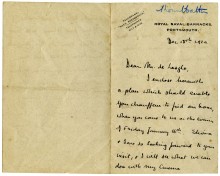 ROYAL NAVAL BARRACKS,
PORTSMOUTH.
Dec 13th 19
Dear Mr. de Laszlo,
I enclose herewith
a plan which should enable
your chauffeur to find our house
when you come to us on the evening
of Friday January
& I are looking forward to your
visit, & I will see what we can
do with my cinema